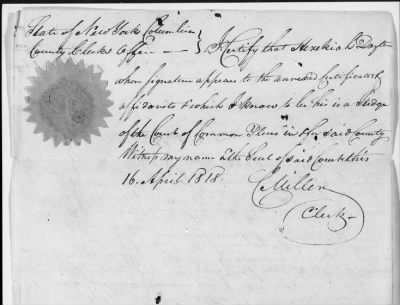 State of New York Columbia
County Clerks Office — } I Certify that Hezekiah L Dayton
whose signature appears to the annexed certificates &
affidavits & which I know to be his is a Judge
of the Court of Common Pleas in & for said County
Witness my name & the Seal of said Court this
16 April 1818.
C Miller
Clerk